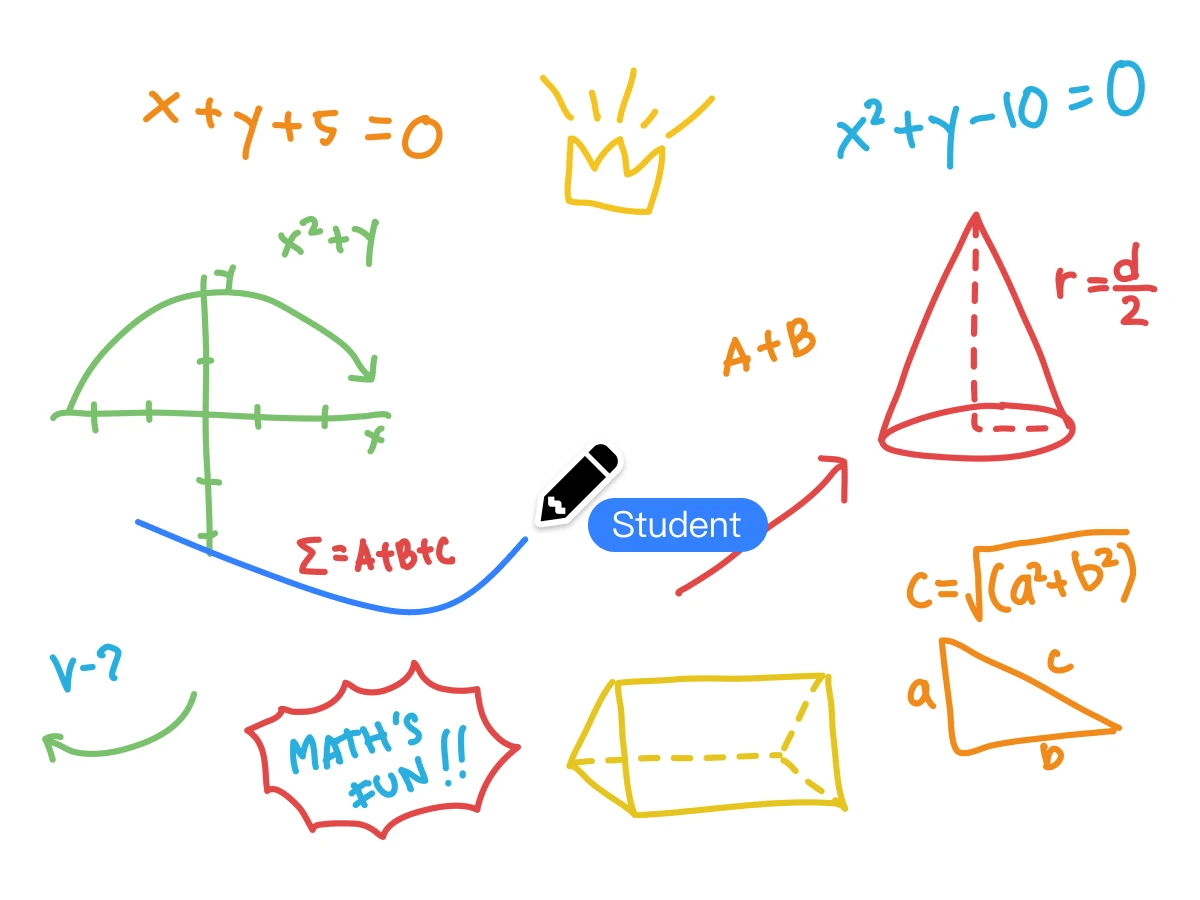 x + y + 5 = 0
x² + y - 10 = 0
x² + y
y
x
r = d/2
A + B
Student
Σ = A + B + C
c = √(a² + b²)
V - ?
MATH'S
FUN!!
c
a
b